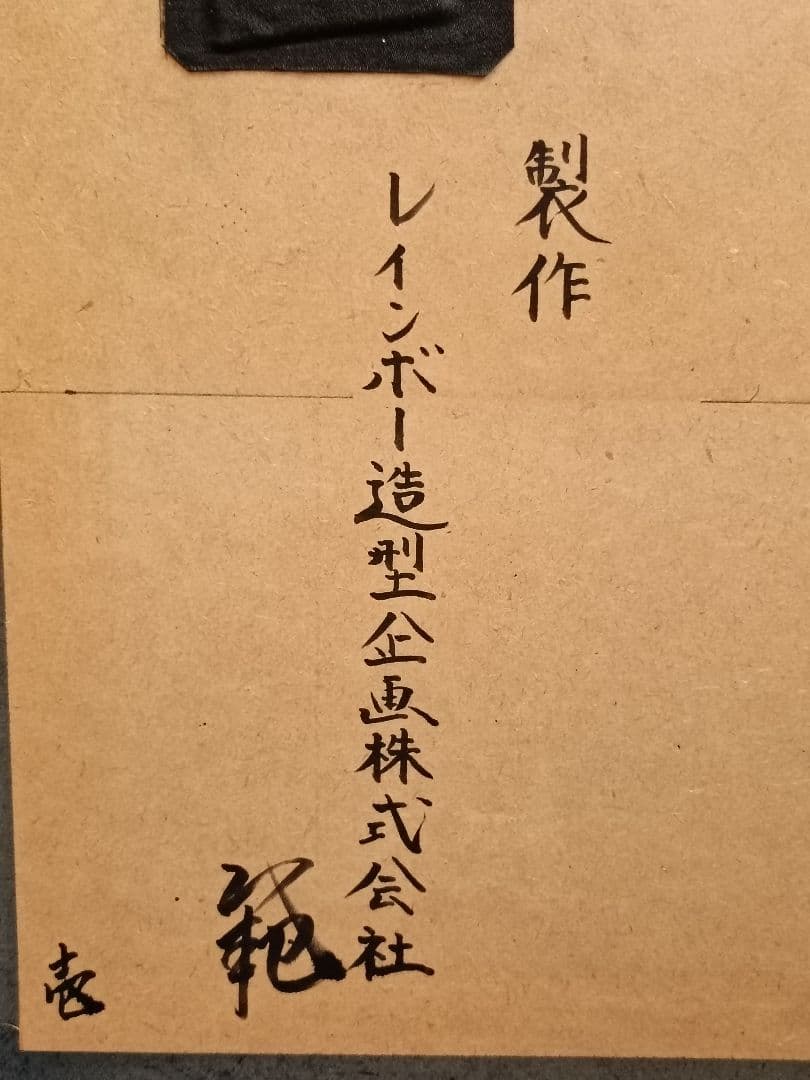 製作
レインボー造型企画株式会社
範
壱